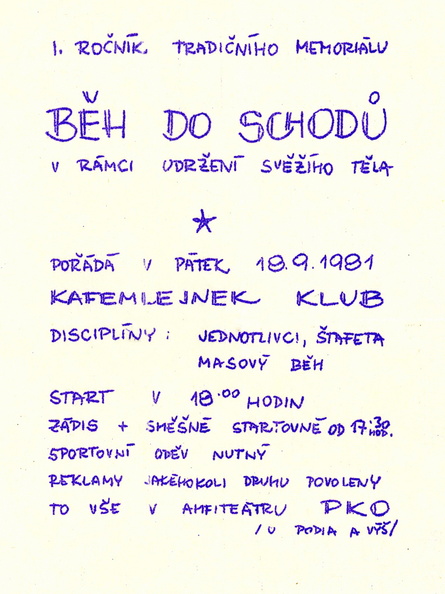 1. ROČNÍK TRADIČNÍHO MEMORIÁLU
BĚH DO SCHODŮ
V RÁMCI UDRŽENÍ SVĚŽÍHO TĚLA
POŘÁDÁ V PÁTEK 18.9.1981
KAFEMLEJNEK KLUB
DISCIPLÍNY: JEDNOTLIVCI, ŠTAFETA
MASOVÝ BĚH
START V 18.00 HODIN
ZÁPIS + SMĚŠNÉ STARTOVNÉ OD 17:30 HOD.
SPORTOVNÍ ODĚV NUTNÝ
REKLAMY JAKÉHOKOLI DRUHU POVOLENY
TO VŠE V AMFITEÁTRU PKO
/U PODIA A VÝŠ/